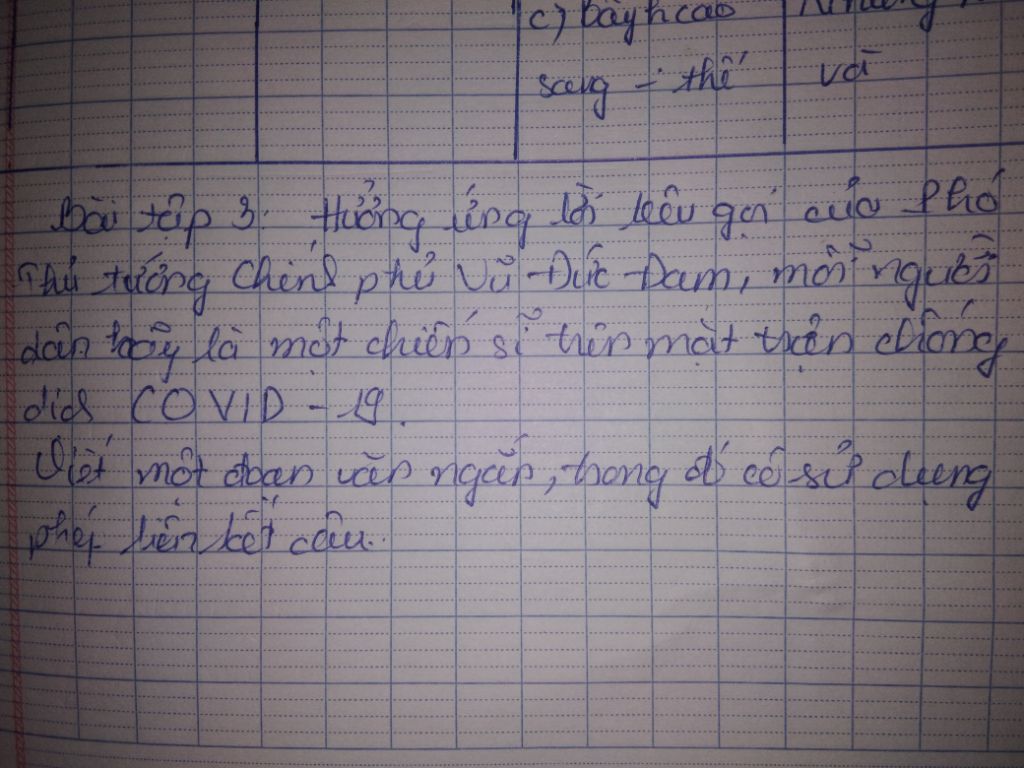 c) bay h cao
sang - thế và
Bài tập 3: Hưởng ứng lời kêu gọi của Phó
Thủ tướng Chính phủ Vũ Đức Đam, mỗi người
dân hãy là một chiến sĩ trên mặt trận chống
dịch COVID - 19.
Viết một đoạn văn ngắn, trong đó có sử dụng
phép liên kết câu.